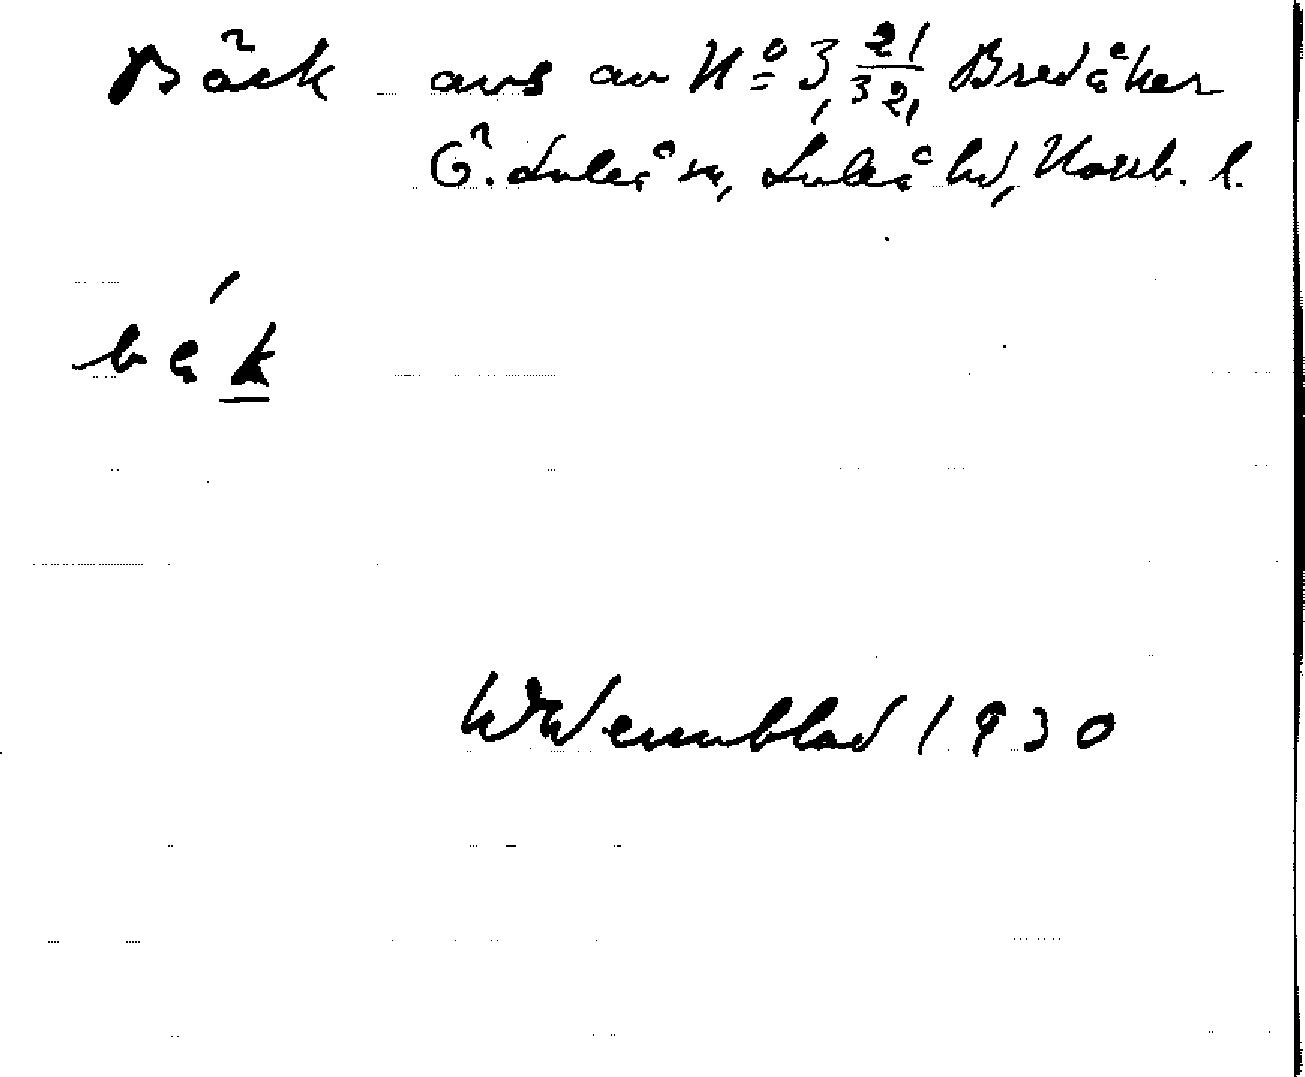 Bäck avs av N:o 3, 21/321 Bredåker
Ö. Luleå sn, Luleå hd, Norrb. l.
bäk
Wennblad 1930